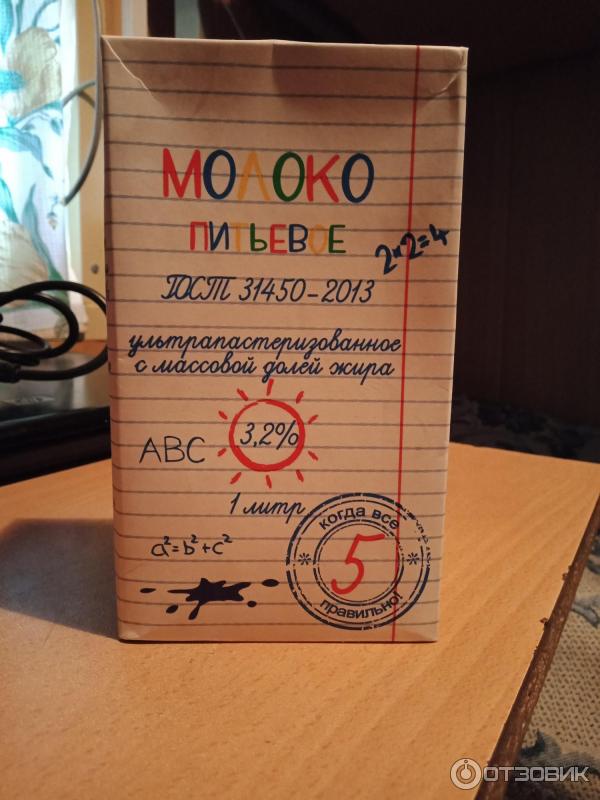 МОЛОКО
ПИТЬЕВОЕ
2×2=4
ГОСТ 31450-2013
ультрапастеризованное
с массовой долей жира
3,2%
ABC
1 литр
a²=b²+c²
когда все
5
правильно!
ОТЗОВИК